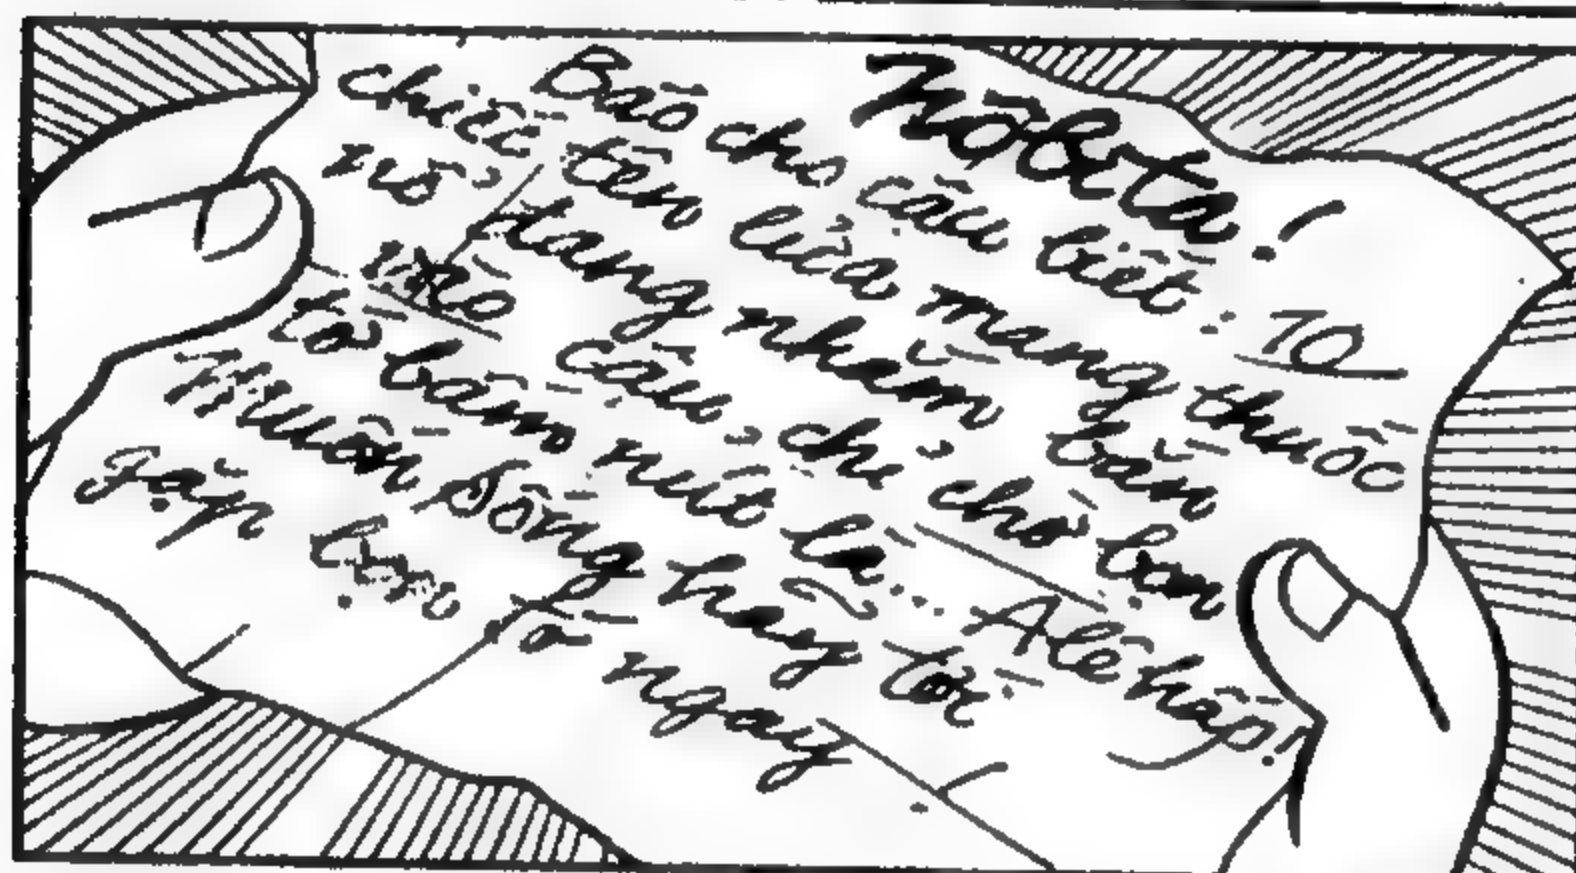 Nôbita!
Báo cho cậu biết: 10
chiếc tên lửa mang thuốc
nổ đang nhắm bắn
vào cậu, chỉ chờ bọn
tớ bấm nút là... Alê hấp!
Muốn sống hãy tới
gặp bọn tớ ngay